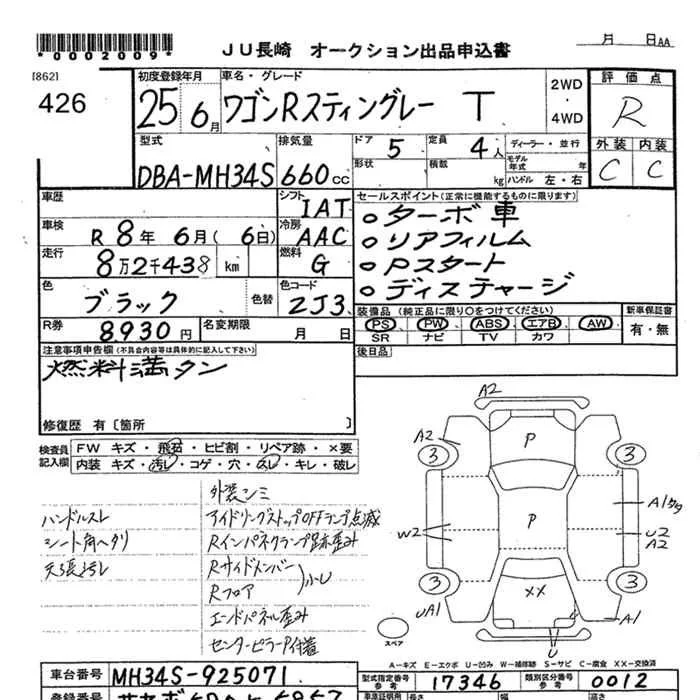 *0002009*
JU長崎 オークション出品申込書
月 日AA
[862]
426
初度登録年月
25 6月
車名・グレード
ワゴンRスティングレー T
2WD・4WD
評価点
R
外装 内装
C C
型式
DBA-MH34S
排気量
660cc
ドア 5
形状
定員 4人
積載 kg
ディーラー・並行
モデル年式 年
ハンドル 左・右
車歴
シフト IAT
車検 R8年 6月(6日)
冷房 AAC
走行 8万2千438 km
燃料 G
色 ブラック 色替
色コード 2J3
R券 8,930円
名変期限 月 日
セールスポイント(正常に機能するものに限ります)
○ターボ車
○リアフィルム
○Pスタート
○ディスチャージ
装備品(純正品に限り○をつけてください)
PS PW ABS エアB AW
SR ナビ TV カワ
新車保証書
有・無
後日品
注意事項申告欄(不具合内容等は具体的に記入して下さい)
燃料満タン
修復歴 有〔箇所 〕
検査員記入欄
FW キズ・飛石・ヒビ割・リペア跡・×要
内装 キズ・汚レ・コゲ・穴・スレ・キレ・破レ
ハンドルスレ
シート角ヘタリ
天張汚レ
外装シミ
アイドリングストップOFFランプ点滅
RインパネクランプĐ跡歪み
Rサイドメンバー
Rフロア
エンドパネル歪み
センターピラーP付着
A2
A2
P
3 3
P
W2
A1タタ
U2
A2
3 3
XX
UA1
A1
U
スペア
A-キズ E-エクボ U-凹み W-補修跡 S-サビ C-腐食 XX-交換済
車台番号 MH34S-925071
型式指定番号 参考 17346
類別区分番号 参考 0012
登録番号
車庫証明所
長さ
幅
高さ